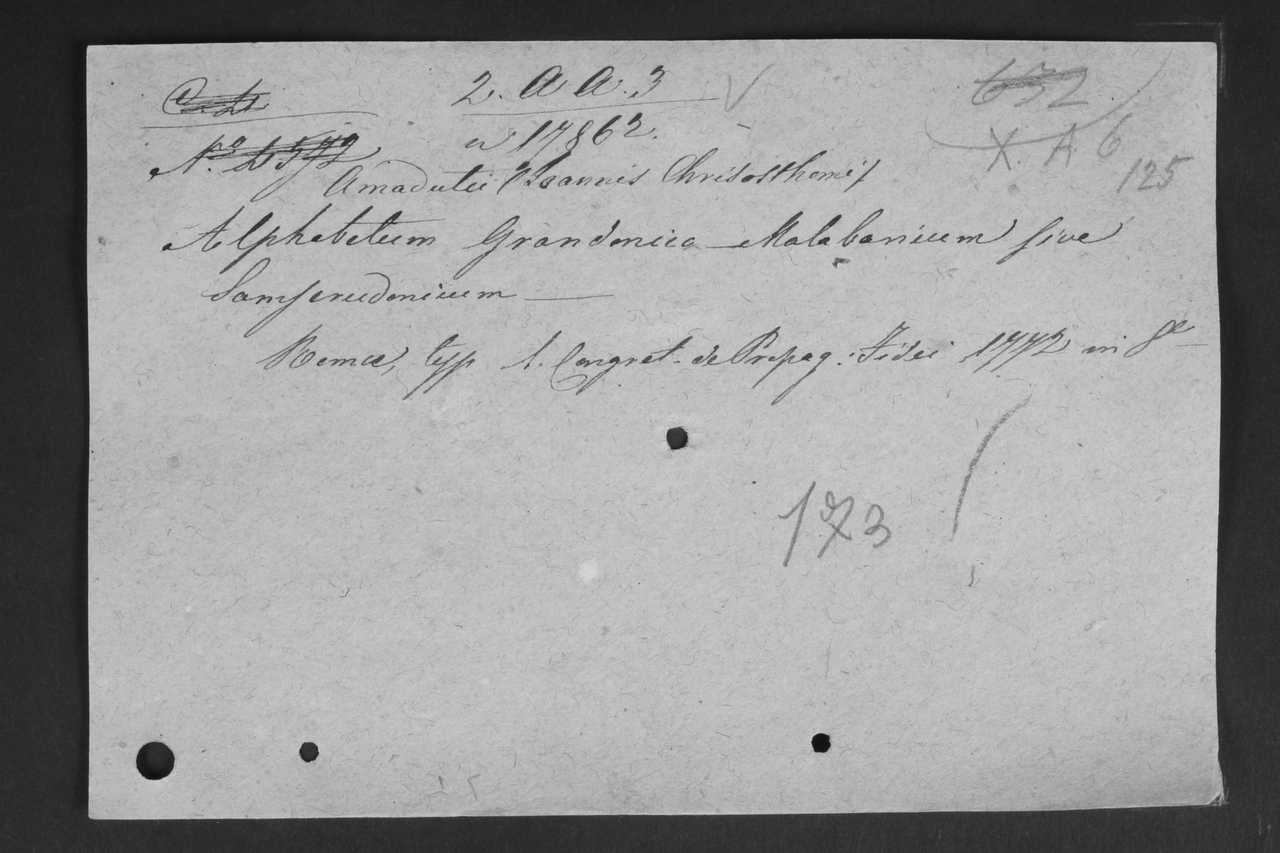 2. A A. 3
632
17862.
X. A 6
125
Amadutii Joannis Chrisosthomi
Alphabetum Grandonico-Malabaricum sive
Samscrudonicum —
Romæ, typ. s. Congreg. de Propag. Fidei 1772 in 8º
173